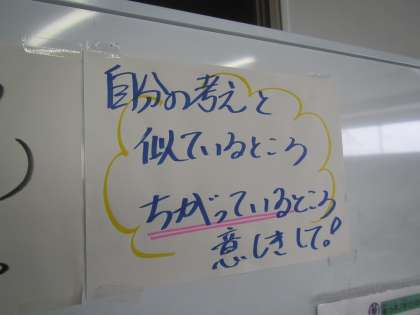 自分の考えと
似ているところ
ちがっているところ
意しきして。